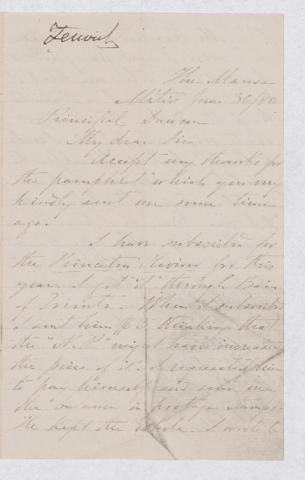 Fenwick
The Manse
Métis Jan. 30/80
Principal Dawson
My dear Sir,
Accept my thanks for
the pamphlet which you very
kindly sent me some time
ago.
I have subscribed for
the Princeton Review for this
year. I got it through Bain
of Toronto. When I subscribed
I sent him $2 thinking that
the "N.P." might have increased
the price of it. I requested him
to pay himself and send me
the balance in postage stamps.
He kept the whole. I wrote to